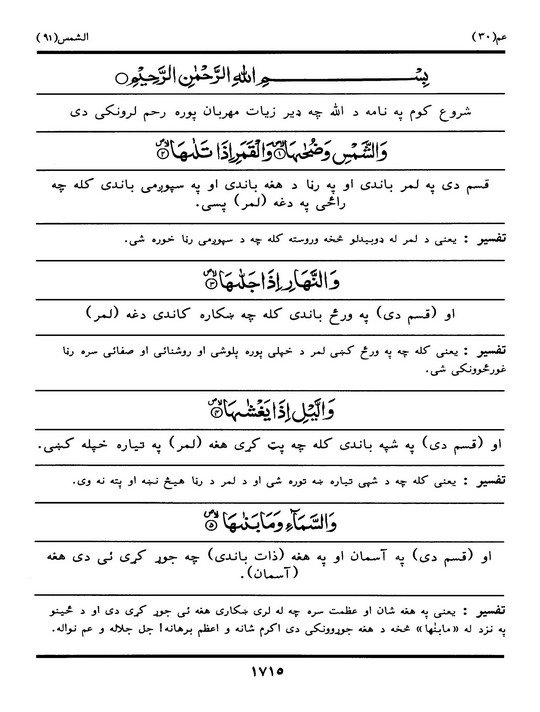 عم(۳۰)
الشمس(۹۱)
بِسْـــــــــــمِ اللهِ الرَّحْمٰنِ الرَّحِيْمِ
شروع کوم په نامه د الله چه ډیر زیات مهربان پوره رحم لرونکی دی
وَالشَّمْسِ وَضُحٰىهَا ۙ۱ وَالْقَمَرِ اِذَا تَلٰىهَا ۙ۲
قسم دی په لمر باندی او په رڼا د هغه باندی او په سپوږمی باندی کله چه
راځی په دغه (لمر) پسی.
تفسیر : یعنی د لمر له ډوبیدلو څخه وروسته کله چه د سپوږمی رڼا خوره شی.
وَالنَّهَارِ اِذَا جَلّٰىهَا ۙ۳
او (قسم دی) په ورځ باندی کله چه ښکاره کاندی دغه (لمر)
تفسیر : یعنی کله چه په ورځ کښی لمر د خپلی پوره پلوشی او روشنائی او صفائی سره رڼا
غورځوونکی شی.
وَالَّيْلِ اِذَا يَغْشٰىهَا ۙ۴
او (قسم دی) په شپه باندی کله چه پټ کړی هغه (لمر) په تیاره خپله کښی.
تفسیر : یعنی کله چه د شپی تیاره ښه توره شی او د لمر د رڼا هیڅ نښه او پته نه وی.
وَالسَّمَآءِ وَمَا بَنٰىهَا ۙ۵
او (قسم دی) په آسمان او په هغه (ذات باندی) چه جوړ کړی ئی دی هغه
(آسمان).
تفسیر : یعنی په هغه شان او عظمت سره چه له لری ښکاری هغه ئی جوړ کړی دی او د ځینو
په نزد له «مابنٰها» څخه د هغه جوړوونکی دی اکرم شانه و اعظم برهانه! جل جلاله و عم نواله.
۱۷۱۵